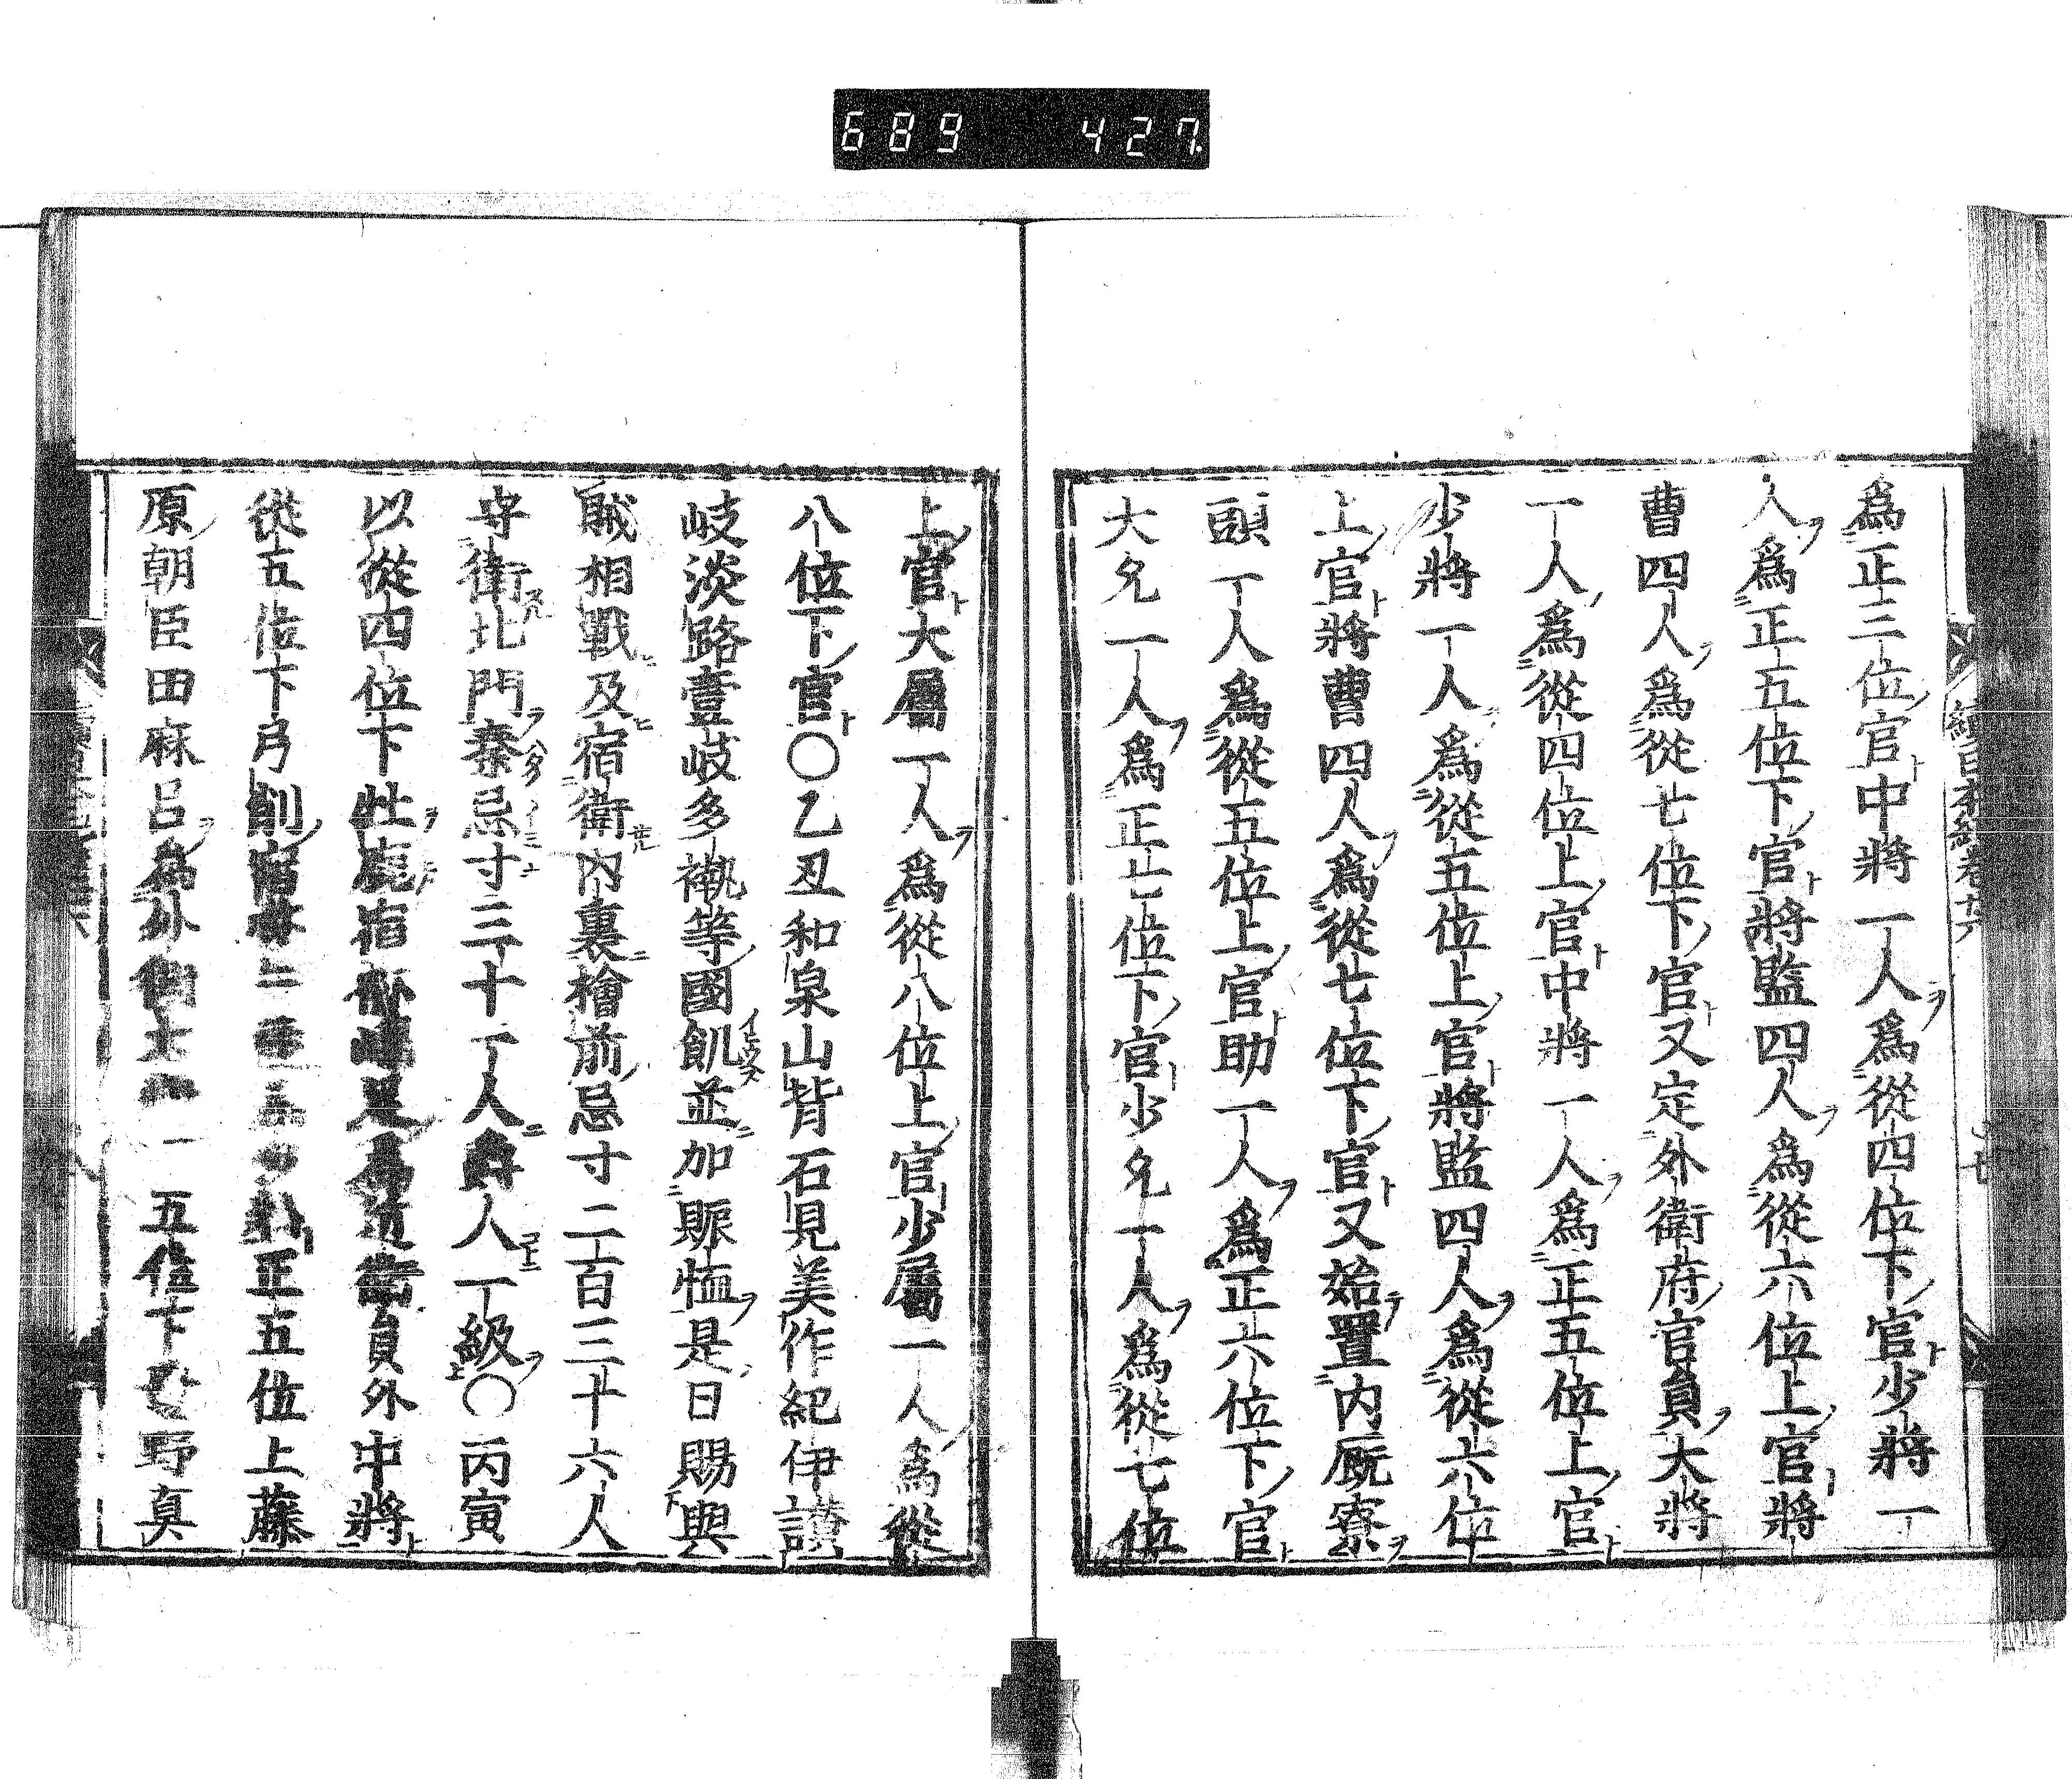 689 427
爲正三位官中將一人爲從四位下官少將一
人爲正五位下官將監四人爲從六位上官將
曹四人爲從七位下官又定外衛府官員大將
一人爲從四位上官中將一人爲正五位上官
少將一人爲從五位上官將監四人爲從六位
上官將曹四人爲從七位下官又始置内厩寮
頭一人爲從五位上官助一人爲正六位下官
大允一人爲正七位下官少允一人爲從七位
上官大屬一人爲從八位上官少屬一人爲從
八位下官〇乙丑和泉山背石見美作紀伊讃
岐淡路壹岐多褹等國飢並加賑恤是日賜與
賊相戰及宿衛内裏檜前忌寸二百三十六人
守衛北門秦忌寸三十一人爵人一級〇丙寅
以從四位下牡鹿宿祢嶋足爲近衛員外中將
從五位下弓削宿祢 正五位上藤
原朝臣田麻呂爲外衛大 五位下 野真